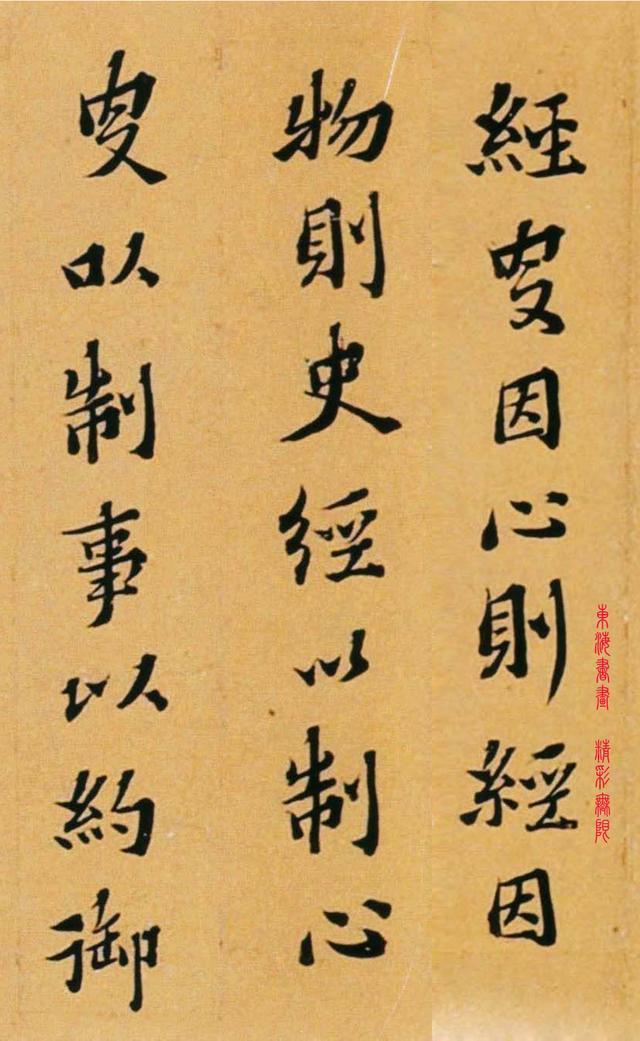 經叓因心則經因
物則史經以制心
叓以制事以約御
東海書畫 精彩無限